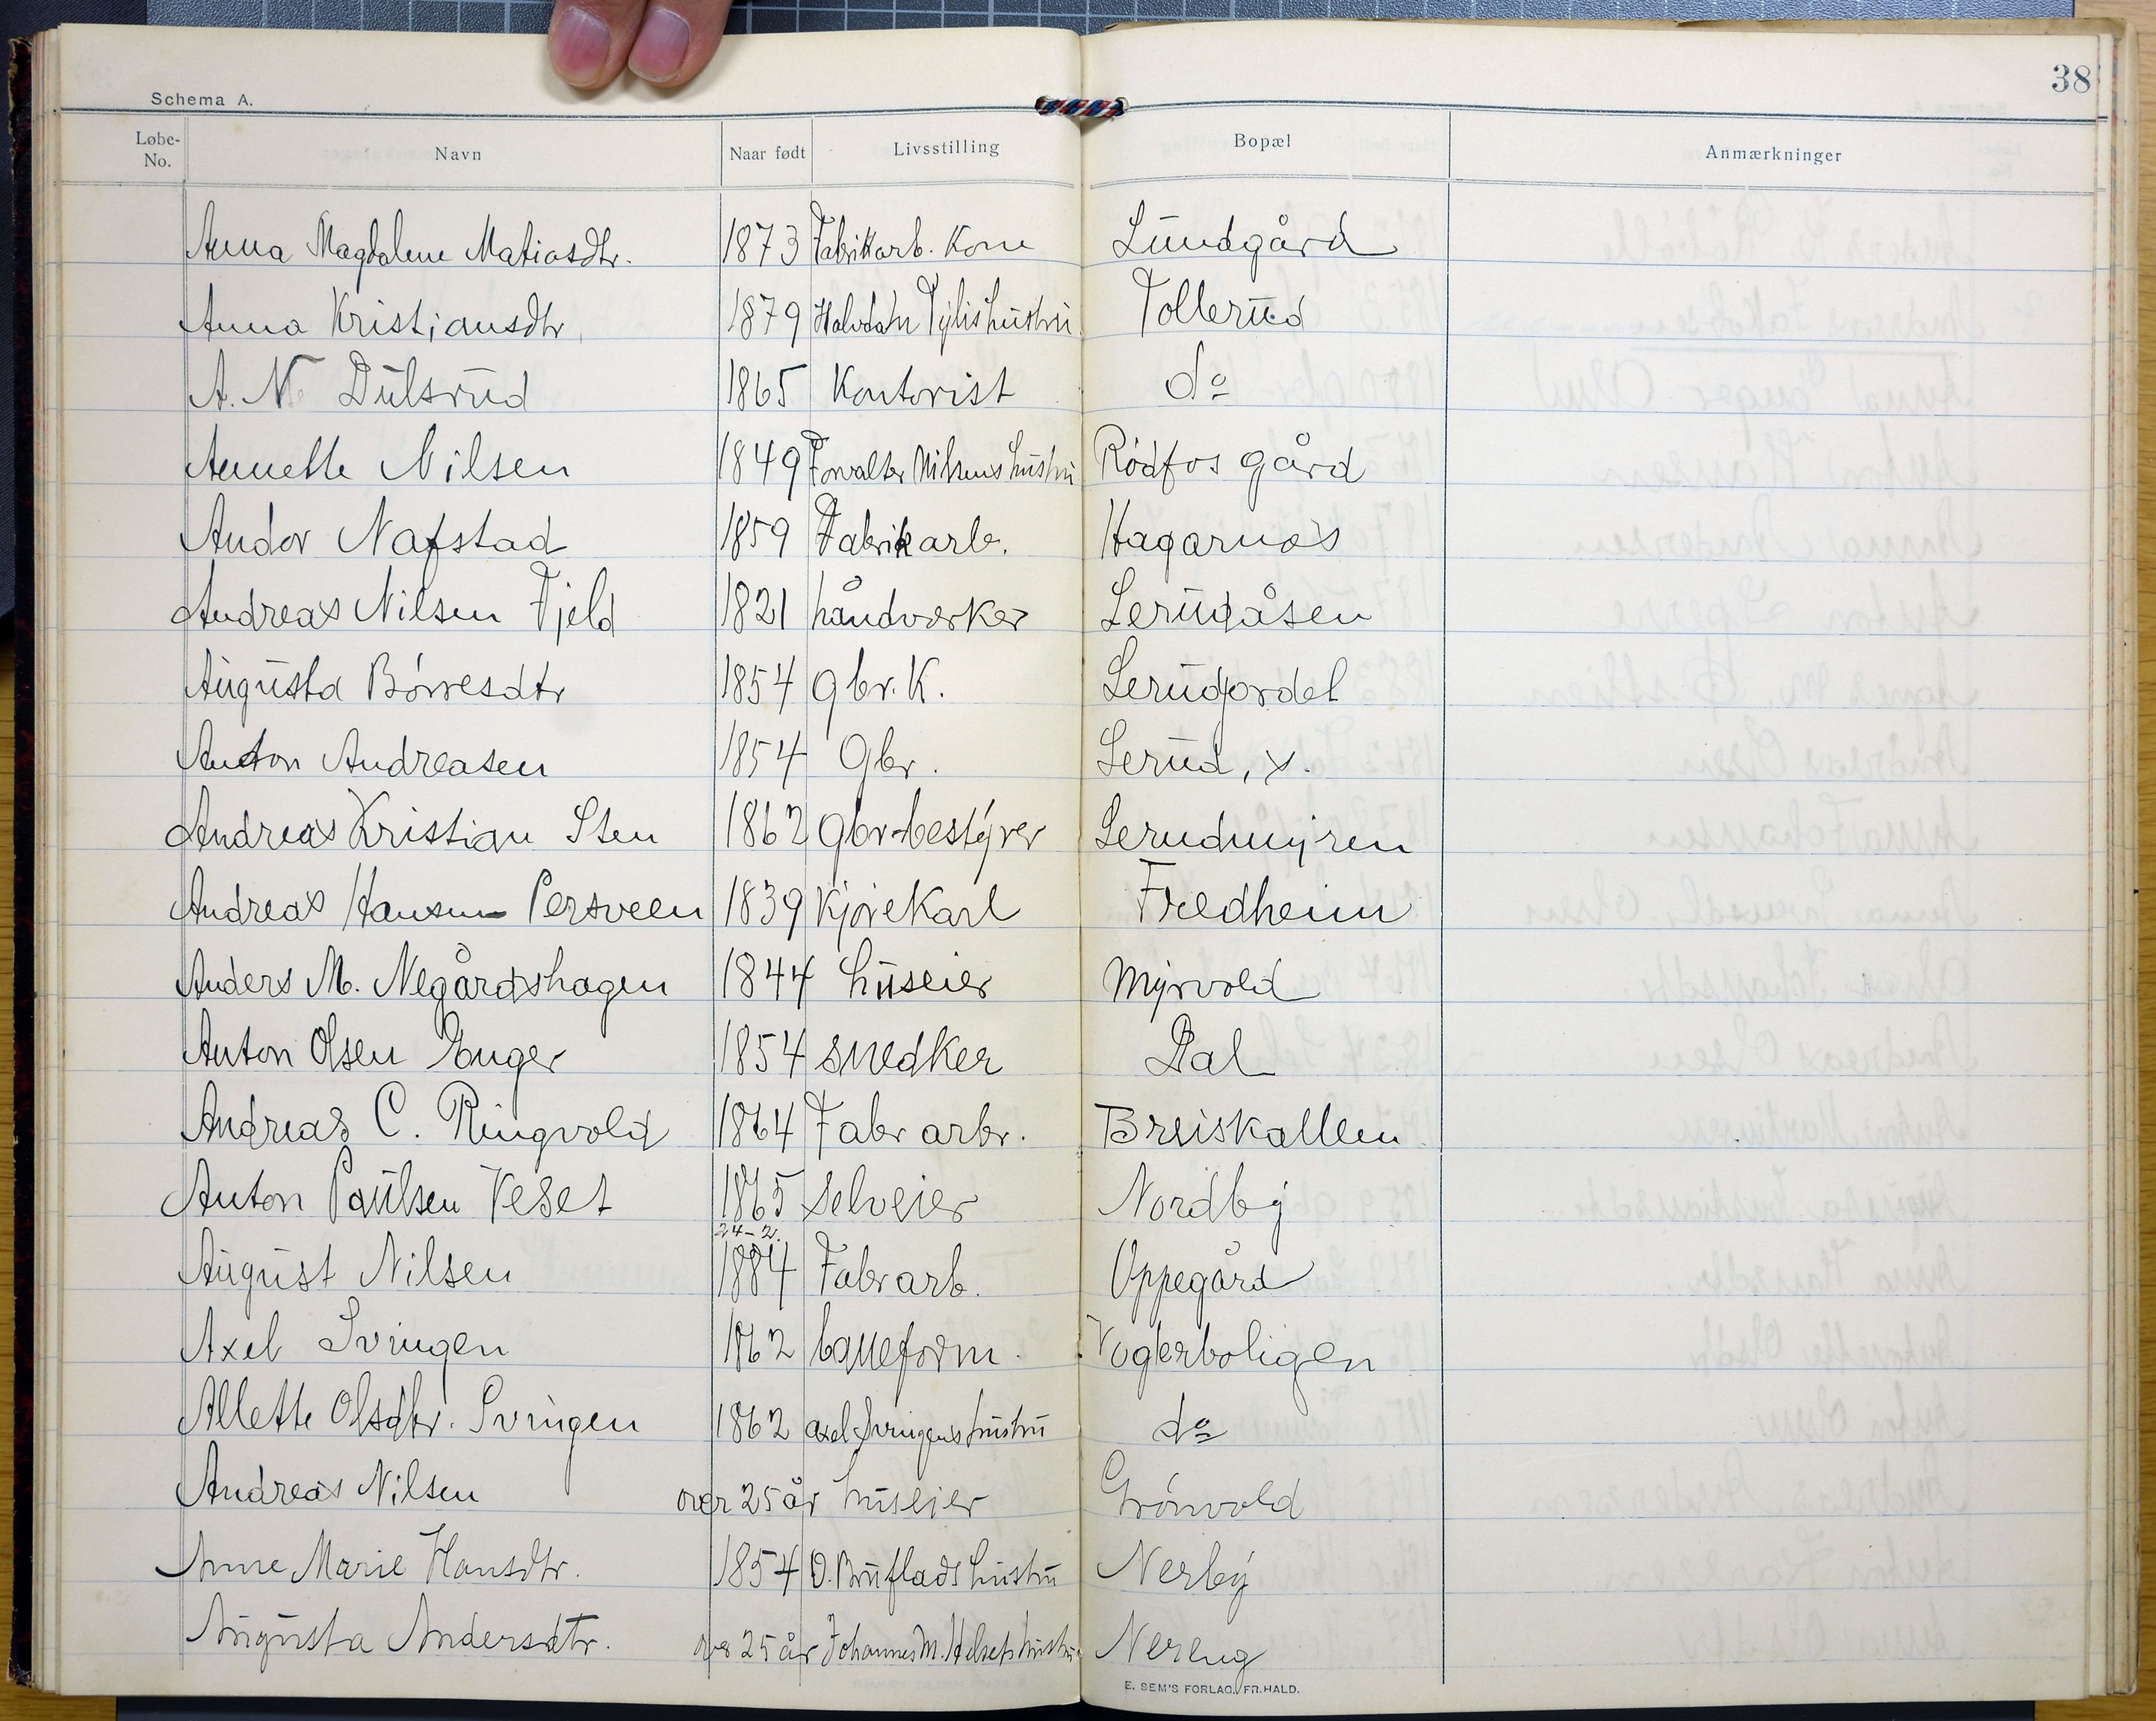 38
Schema A.
Løbe-No. Navn Naar født Livsstilling Bopæl Anmærkninger
Anna Magdalene Matiasdtr. 1873 Fabrikkarb. Kone Lundgård
Anna Kristiansdtr. 1879 Halvdahn hustru Tollerud
A. N. Dulsrud 1865 Kontorist do
Annette Nilsen 1849 Forvalter Nilsens hustru Rødfos gård
Andor Nafstad 1859 Fabrikarb. Hagarnæs
Andreas Nilsen Fjeld 1821 håndværker Lerudåsen
Augusta Børresdtr 1854 Gbr. K. Lerudjordet
Anton Andreasen 1854 Gbr. Lerud, x.
Andreas Kristian Sten 1862 Gbr-bestyrer Lerudmyren
Andreas Hansen Persveen 1839 Kjørekarl Fredheim
Anders M. Negårdshagen 1844 huseier Myrvold
Anton Olsen Enger 1854 snedker Dal
Andreas C. Ringvold 1864 Fabr arbr. Breiskallen
Anton Paulsen Veset 1865 selveier Nordby
August Nilsen 24-2. 1884 Fabr arb. Oppegård
Axel Svingen 1862 baneform. Vogterboligen
Allette Olsdtr. Svingen 1862 axel Svingens hustru do
Andreas Nilsen over 25 år huseier Grønvold
Anne Marie Hansdtr. 1854 O. Bruflads hustru Nerby
Augusta Andersdtr. over 25 år Johannes M. Helsets hustru Nereng
E. SEM'S FORLAG. FR. HALD.